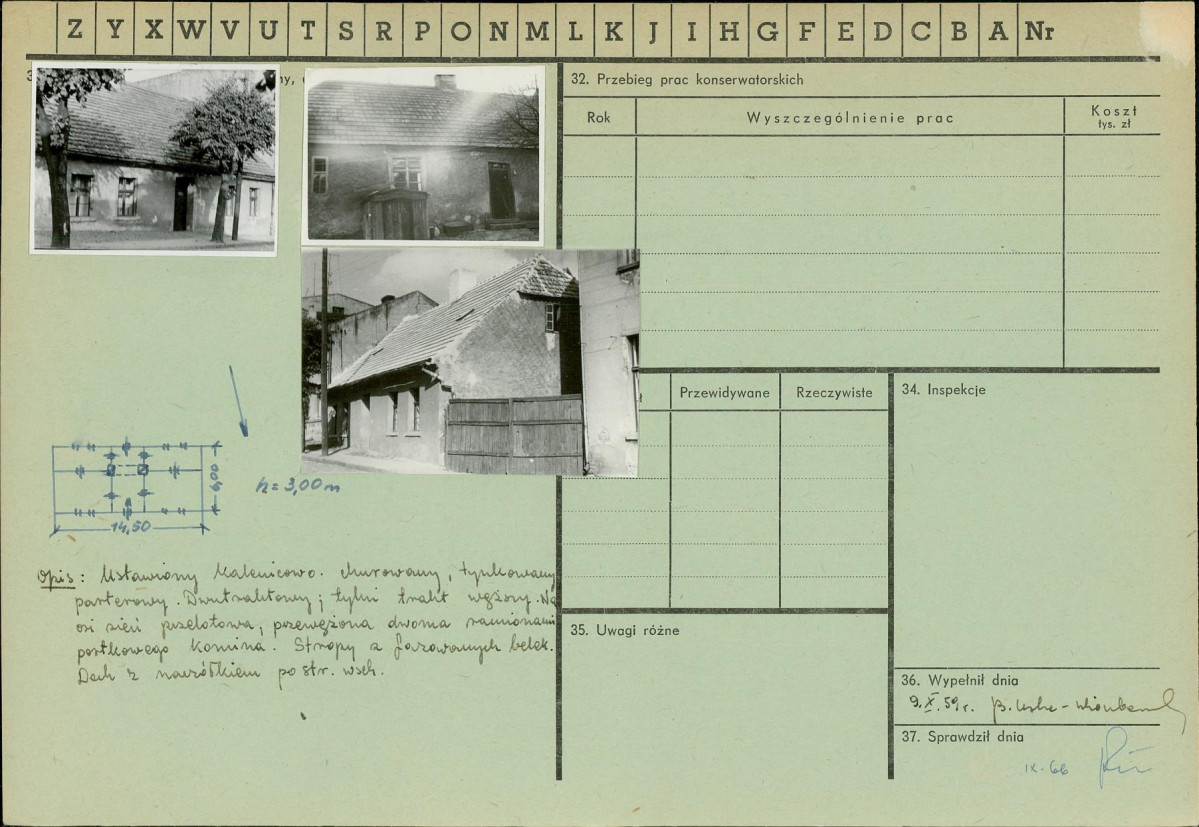 Z Y X W V U T S R P O N M L K J I H G F E D C B A Nr
32. Przebieg prac konserwatorskich
Rok
Wyszczególnienie prac
Koszt
tys. zł
Przewidywane
Rzeczywiste
34. Inspekcje
h = 3,00 m
6,00
14,50
Opis: Ustawiony kalenicowo. Murowany, tynkowany
parterowy. Dwutraktowy; tylni trakt węższy. Na
osi sień przelotowa, przewężona dwoma ramionami
portkowego komina. Stropy z fazowanych belek.
Dach z naczółkiem po str. wsch.
35. Uwagi różne
36. Wypełnił dnia
9.X.59 r.
37. Sprawdził dnia
IX-66